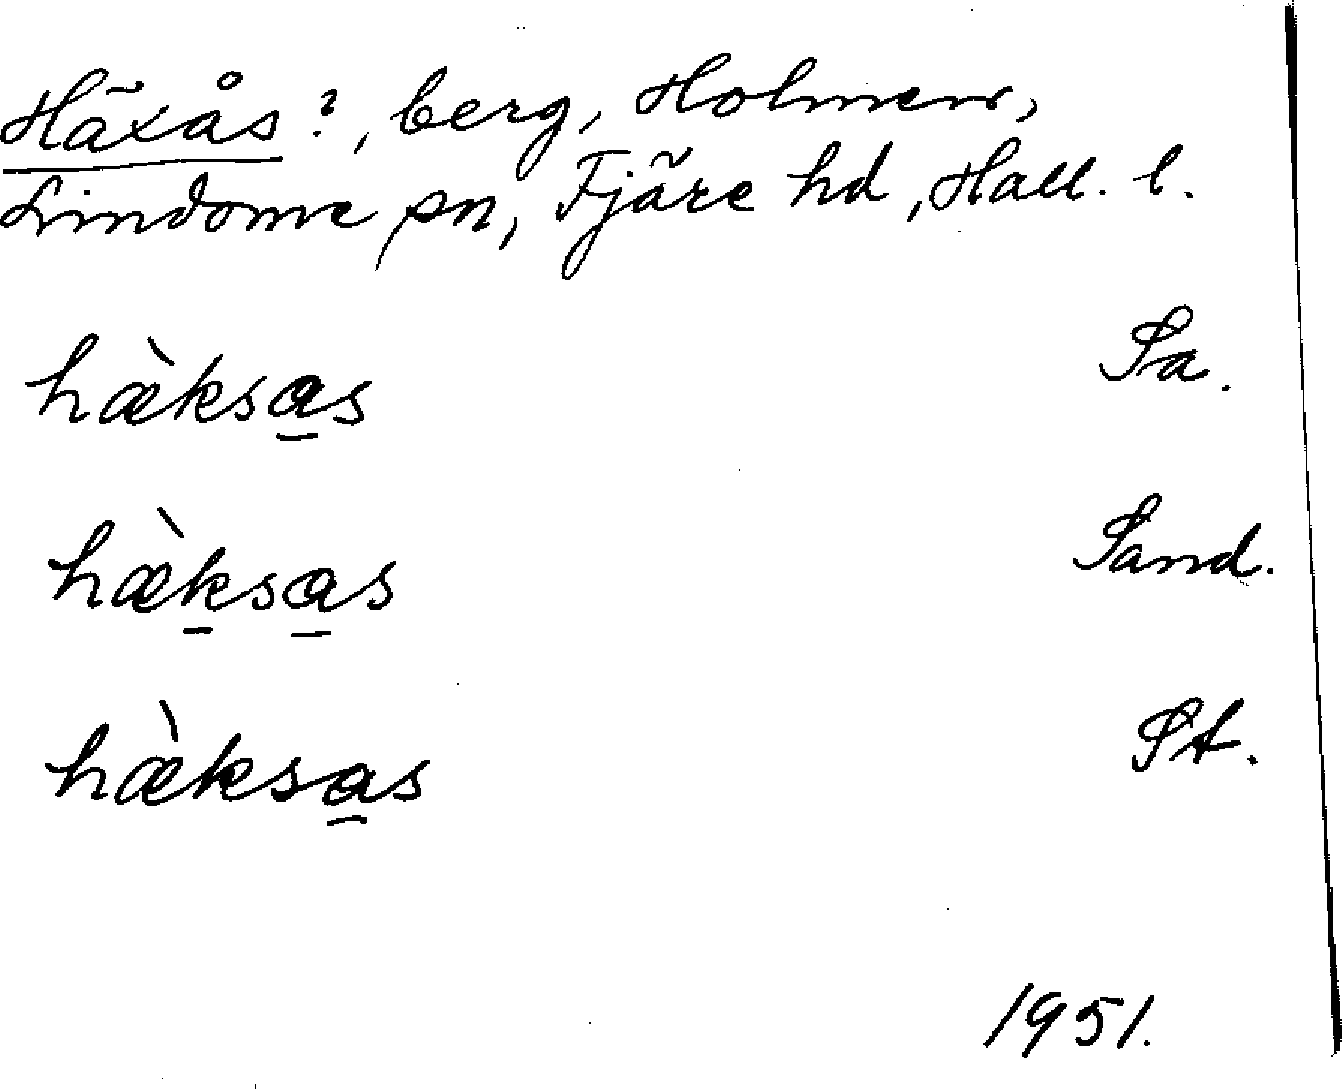 Häxås?, berg, Holmen,
Lindome sn, Fjäre hd, Hall. l.
hæ̀ksa̲s Sa.
hæ̀k̲sa̲s Sand.
hæ̀ksa̲s St.
1951.